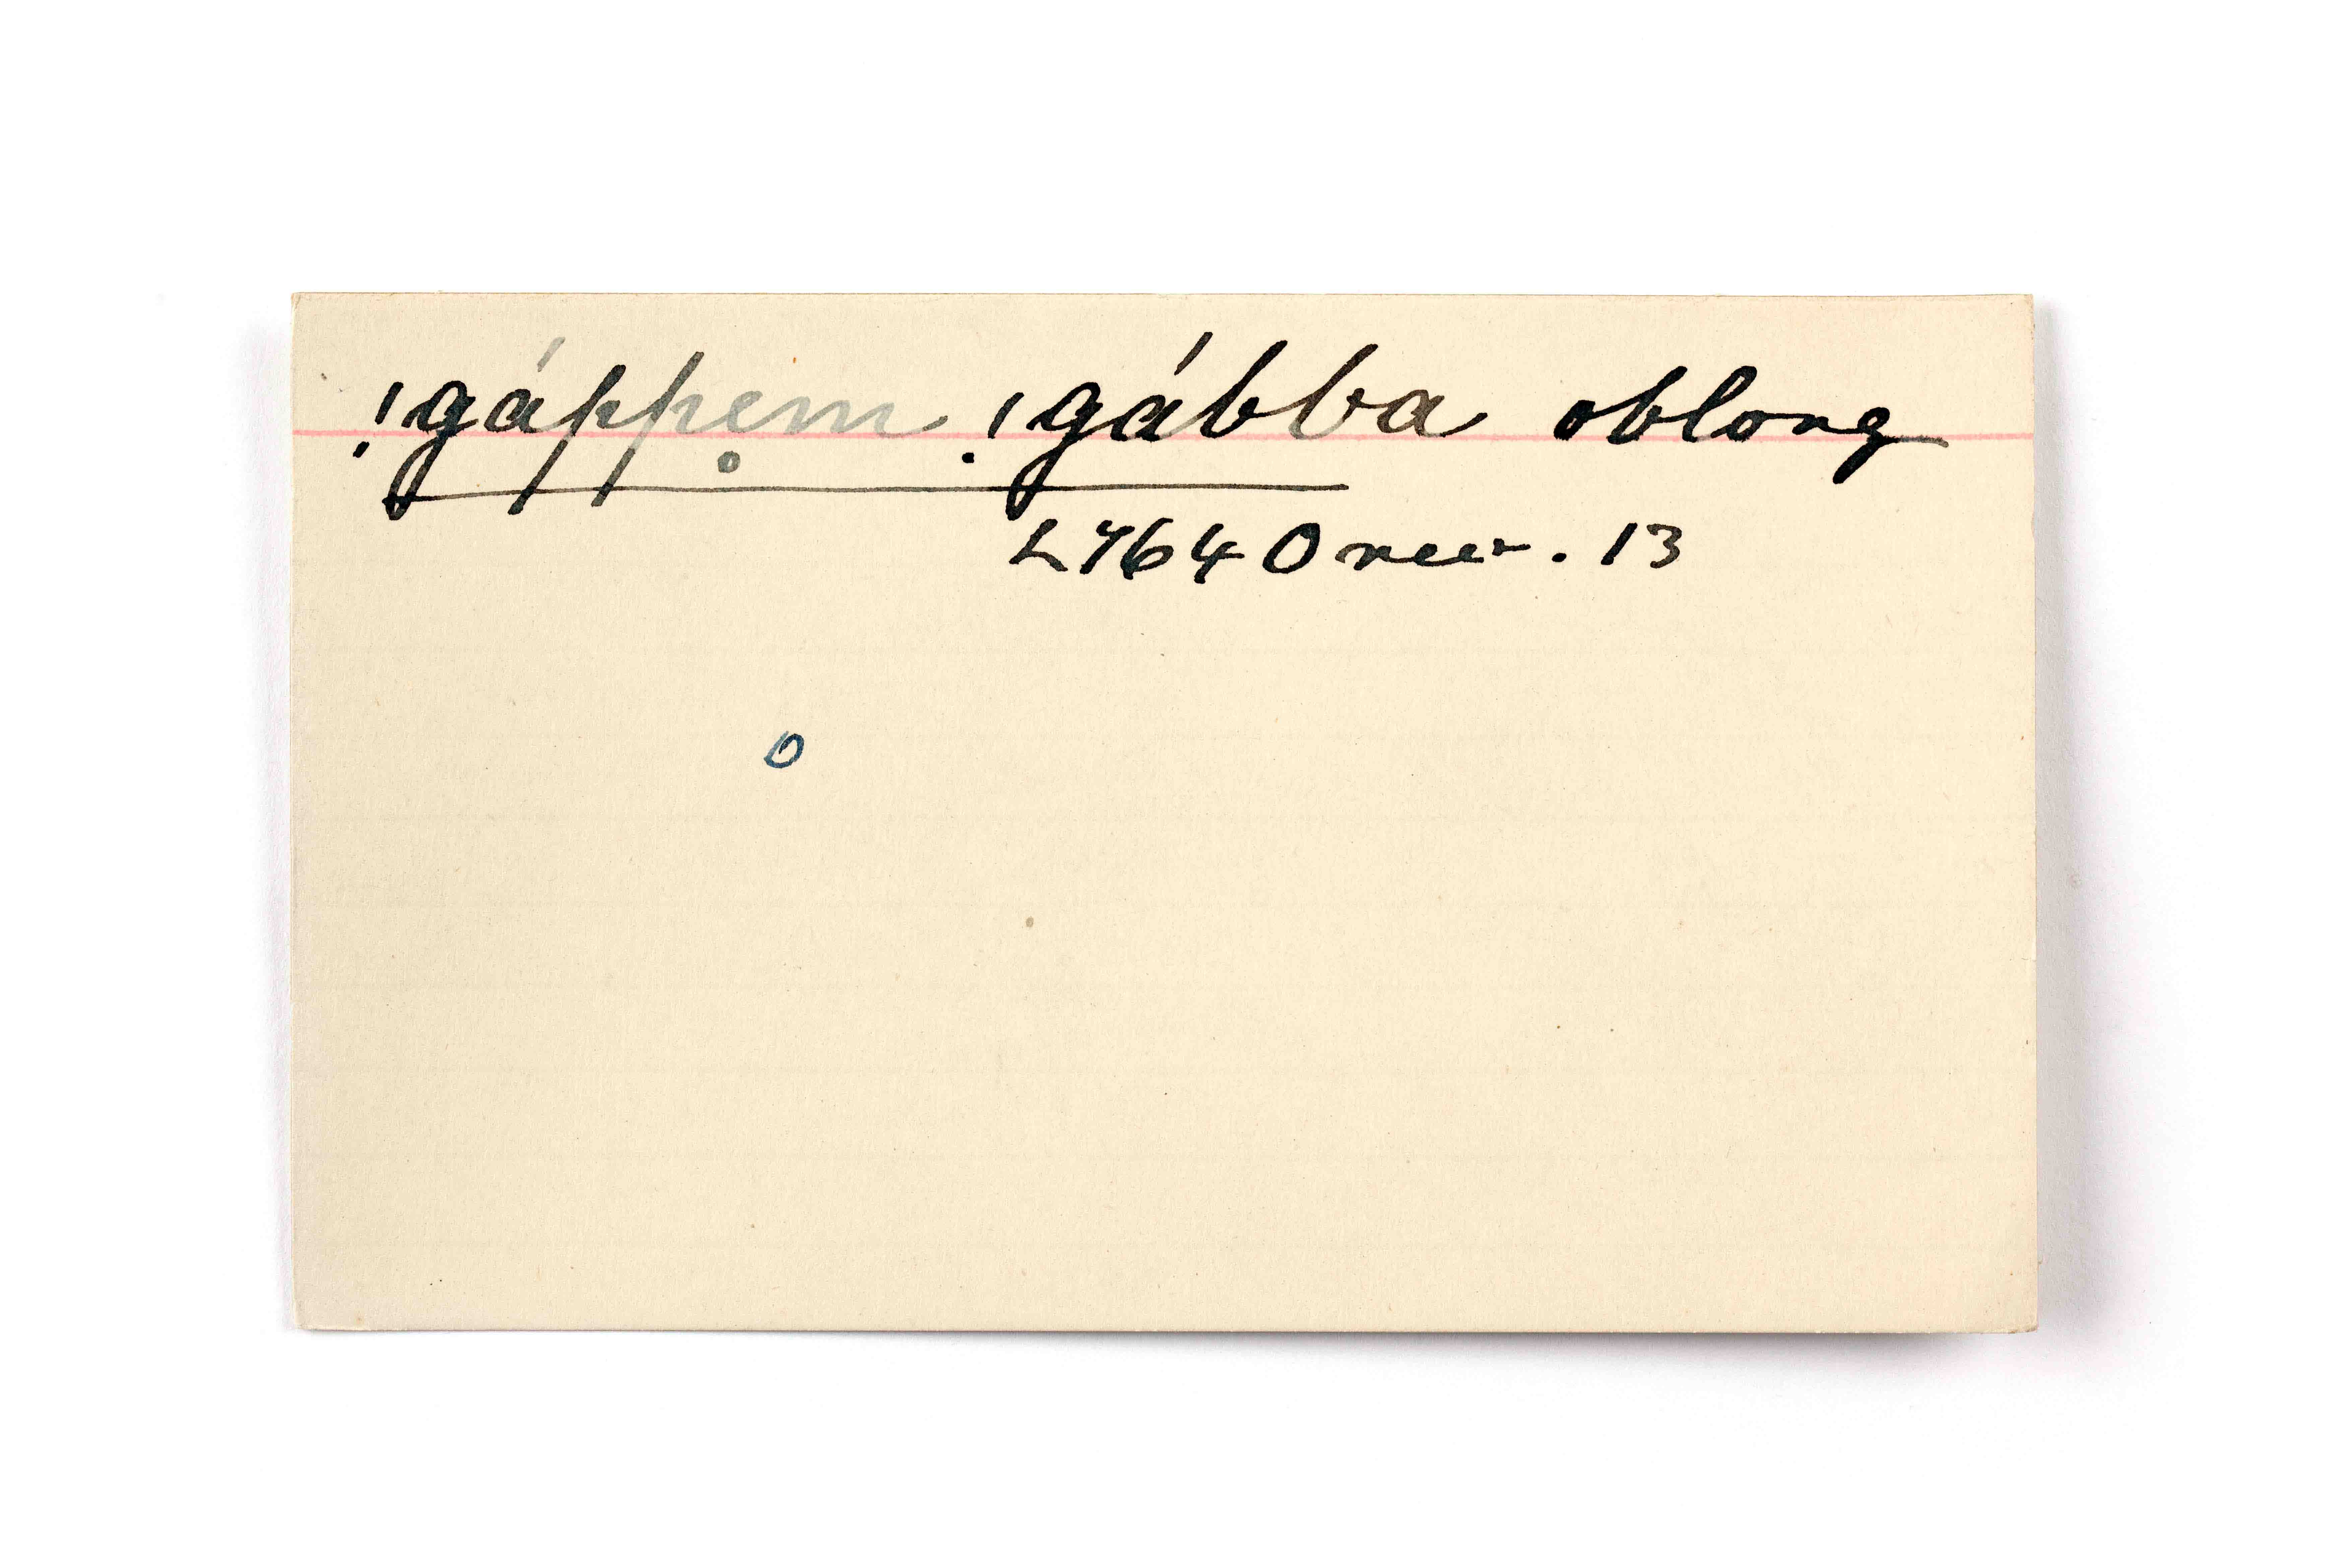 !gáppe̥m !gábba oblong
L7640 rev. 13
o